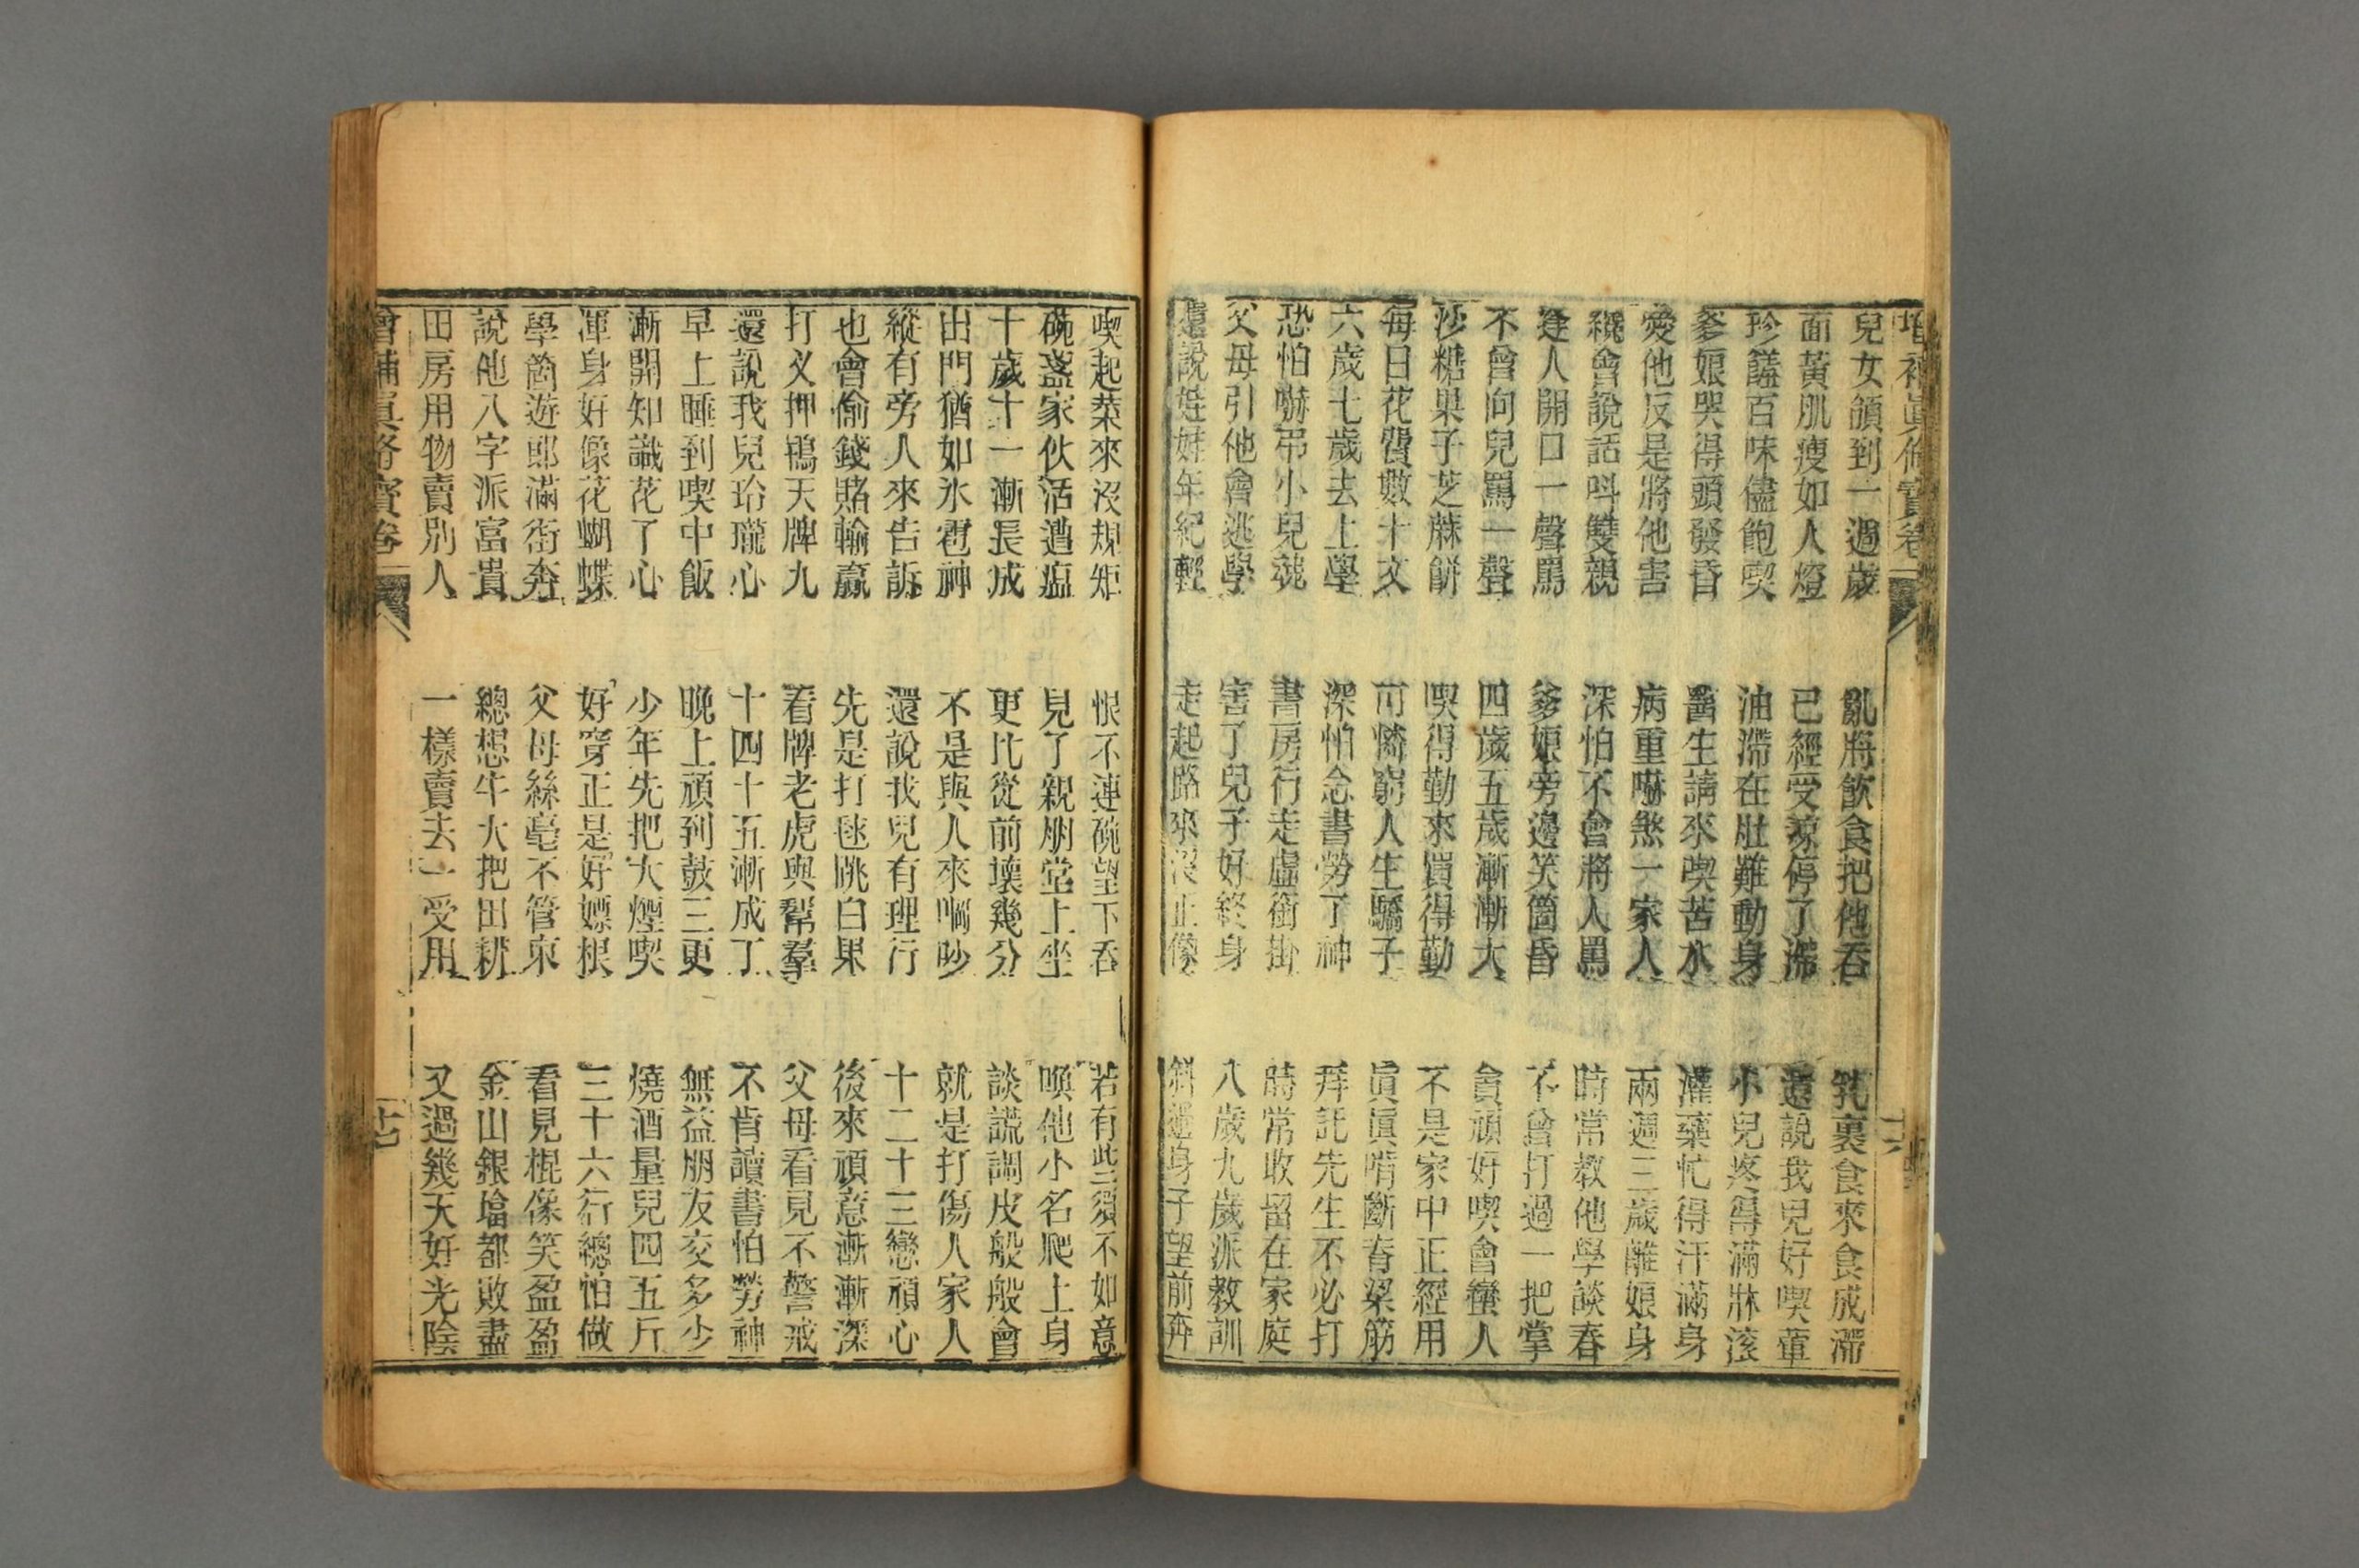 增補眞修寶卷 十六
兒女領到一週歲 亂將飲食把他吞 乳裹食來食成滯
面黃肌瘦如人燈 已經受涼停了滯 還說我兒好喫葷
珍饈百味儘飽喫 油滯在肚難動身 小兒疼得滿牀滾
爹娘哭得頭發昏 醫生請來喫苦水 灌藥忙得汗滿身
愛他反是將他害 病重嚇煞一家人 兩週三歲離娘身
纔會說話呌雙親 深怕不會將人罵 時常教他學談春
逢人開口一聲罵 爹娘旁邊笑箇昏 不曾打過一把掌
不曾向兒罵一聲 四歲五歲漸漸大 貪頑好喫會蠻人
沙糖果子芝蔴餅 喫得勤來買得勤 不是家中正經用
每日花費數十文 可憐窮人生驕子 眞眞啃斷脊梁筋
六歲七歲去上學 深怕念書勞了神 拜託先生不必打
恐怕嚇弔小兒魂 書房行走虛銜掛 時常收留在家庭
父母引他會逃學 害了兒子好終身 八歲九歲派教訓
還說年紀輕 走起路來沒正像 斜過身子望前奔
喫起菜來沒規矩 恨不連碗望下吞 若有些須不如意
碗盞家伙活遭瘟 見了親朋堂上坐 喚他小名爬上身
十歲十一漸長成 更比從前壞幾分 談謊調皮般般會
出門猶如氷雹神 不是與人來啁吵 就是打傷人家人
縱有旁人來告訴 還說我兒有理行 十二十三戀頑心
也會偷錢賭輸贏 先是打毬跳白果 後來頑意漸漸深
打义押鴇天牌九 看牌老虎與幫羣 父母看見不警戒
還說我兒玲瓏心 十四十五漸成丁 不肯讀書怕勞神
早上睡到喫中飯 晚上頑到鼓三更 無益朋友交多少
漸開知識花了心 少年先把大煙喫 燒酒量兒四五斤
渾身好像花蝴蝶 好穿正是好嫖根 三十六行總怕做
學箇遊郎滿街奔 父母絲毫不管束 看見棍像笑盈盈
說他八字派富貴 總想牛大把田耕 金山銀壋都敗盡
田房用物賣別人 一樣賣去一受用 又過幾天好光陰
增補眞修寶卷 十七